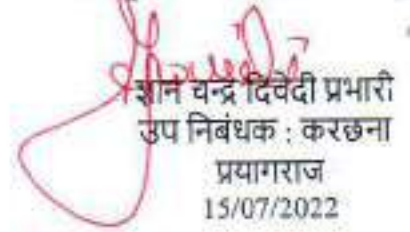 ज्ञान चन्द्र दिवेदी प्रभारी
उप निबंधक : करछना
प्रयागराज
15/07/2022